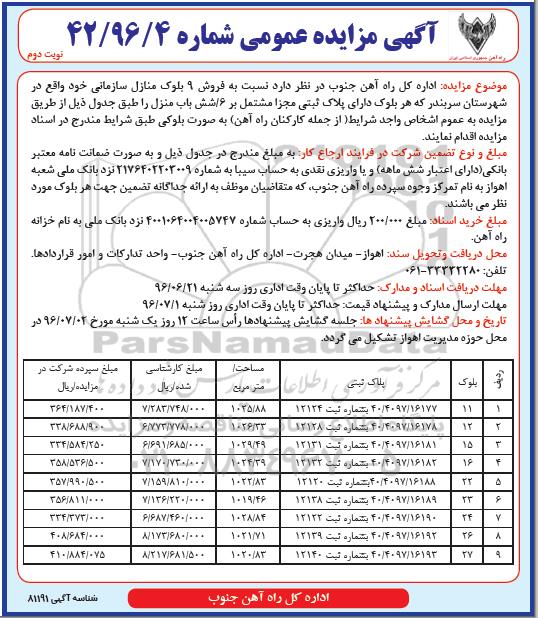 آگهی مزایده عمومی شماره ۴۲/۹۶/۴
نوبت دوم
راه آهن جمهوری اسلامی ایران
موضوع مزایده: اداره کل راه آهن جنوب در نظر دارد نسبت به فروش ۹ بلوک منازل سازمانی خود واقع در
شهرستان سربندر که هر بلوک دارای پلاک ثبتی مجزا مشتمل بر ۶/شش باب منزل را طبق جدول ذیل از طریق
مزایده به عموم اشخاص واجد شرایط( از جمله کارکنان راه آهن) به صورت بلوکی طبق شرایط مندرج در اسناد
مزایده اقدام نمایند.
مبلغ و نوع تضمین شرکت در فرایند ارجاع کار: به مبلغ مندرج در جدول ذیل و به صورت ضمانت نامه معتبر
بانکی(دارای اعتبار شش ماهه) و یا واریزی نقدی به حساب سیبا به شماره ۲۱۷۶۴۰۲۲۰۳۰۰۹ نزد بانک ملی شعبه
اهواز به نام تمرکز وجوه سپرده راه آهن جنوب، که متقاضیان موظف به ارائه جداگانه تضمین جهت هر بلوک مورد
نظر می باشند.
مبلغ خرید اسناد: مبلغ ۲۰۰/۰۰۰ ریال واریزی به حساب شماره ۴۰۰۱۰۶۴۰۰۴۰۰۵۷۴۷ نزد بانک ملی به نام خزانه
راه آهن.
محل دریافت وتحویل سند: اهواز- میدان هجرت- اداره کل راه آهن جنوب- واحد تدارکات و امور قراردادها.
تلفن: ۳۳۳۲۲۲۸۰-۰۶۱
مهلت دریافت اسناد و مدارک: حداکثر تا پایان وقت اداری روز سه شنبه ۹۶/۰۶/۲۱
مهلت ارسال مدارک و پیشنهاد قیمت: حداکثر تا پایان وقت اداری روز شنبه ۹۶/۰۷/۱
تاریخ و محل گشایش پیشنهاد ها: جلسه گشایش پیشنهادها رأس ساعت ۱۲ روز یک شنبه مورخ ۹۶/۰۷/۰۲ در
محل حوزه مدیریت اهواز تشکیل می گردد.
ردیف بلوک پلاک ثبتی مساحت/متر مربع مبلغ کارشناسی شده/ریال مبلغ سپرده شرکت در مزایده/ریال
۱ ۱۱ ۴۰/۴۰۹۷/۱۶۱۷۷ بشماره ثبت ۱۲۱۲۴ ۱۰۲۵/۸۸ ۷/۲۸۳/۷۴۸/۰۰۰ ۳۶۴/۱۸۷/۴۰۰
۲ ۱۲ ۴۰/۴۰۹۷/۱۶۱۷۸ بشماره ثبت ۱۲۱۲۸ ۱۰۲۶/۳۳ ۶/۷۷۳/۷۷۸/۰۰۰ ۳۳۸/۶۸۸/۹۰۰
۳ ۱۵ ۴۰/۴۰۹۷/۱۶۱۸۱ بشماره ثبت ۱۲۱۳۱ ۱۰۲۹/۴۹ ۶/۶۹۱/۶۸۵/۰۰۰ ۳۳۴/۵۸۴/۲۵۰
۴ ۱۶ ۴۰/۴۰۹۷/۱۶۱۸۲ بشماره ثبت ۱۲۱۳۲ ۱۰۲۴/۳۹ ۷/۱۷۰/۷۳۰/۰۰۰ ۳۵۸/۵۳۶/۵۰۰
۵ ۲۲ ۴۰/۴۰۹۷/۱۶۱۸۸ بشماره ثبت ۱۲۱۲۰ ۱۰۲۲/۸۳ ۷/۱۵۹/۸۱۰/۰۰۰ ۳۵۷/۹۹۰/۵۰۰
۶ ۲۳ ۴۰/۴۰۹۷/۱۶۱۸۹ بشماره ثبت ۱۲۱۳۸ ۱۰۱۹/۴۶ ۷/۱۳۶/۲۲۰/۰۰۰ ۳۵۶/۸۱۱/۰۰۰
۷ ۲۴ ۴۰/۴۰۹۷/۱۶۱۹۰ بشماره ثبت ۱۲۱۲۲ ۱۰۲۸/۸۴ ۶/۶۸۷/۴۶۰/۰۰۰ ۳۳۴/۳۷۳/۰۰۰
۸ ۲۶ ۴۰/۴۰۹۷/۱۶۱۹۲ بشماره ثبت ۱۲۱۳۹ ۱۰۲۱/۷۱ ۸/۱۷۳/۶۸۰/۰۰۰ ۴۰۸/۶۸۴/۰۰۰
۹ ۲۷ ۴۰/۴۰۹۷/۱۶۱۹۳ بشماره ثبت ۱۲۱۴۰ ۱۰۲۰/۸۳ ۸/۲۱۷/۶۸۱/۵۰۰ ۴۱۰/۸۸۴/۰۷۵
اداره کل راه آهن جنوب
شناسه آگهی ۸۱۱۹۱
ParsNamadData